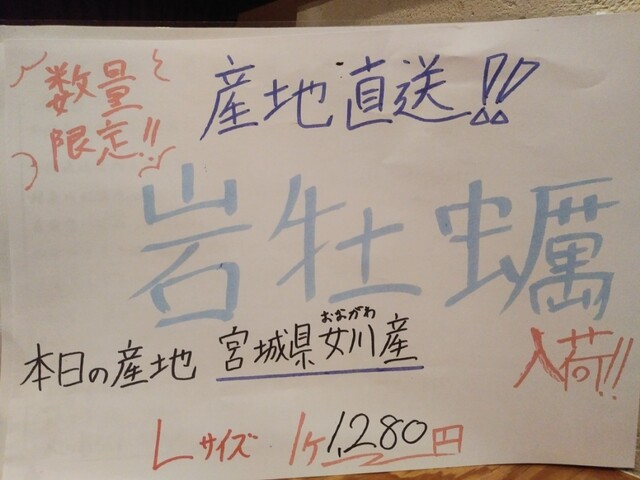 数量
限定!!
産地直送!!
岩牡蠣
入荷!!
本日の産地 宮城県女川産
おながわ
Lサイズ 1ケ1,280円